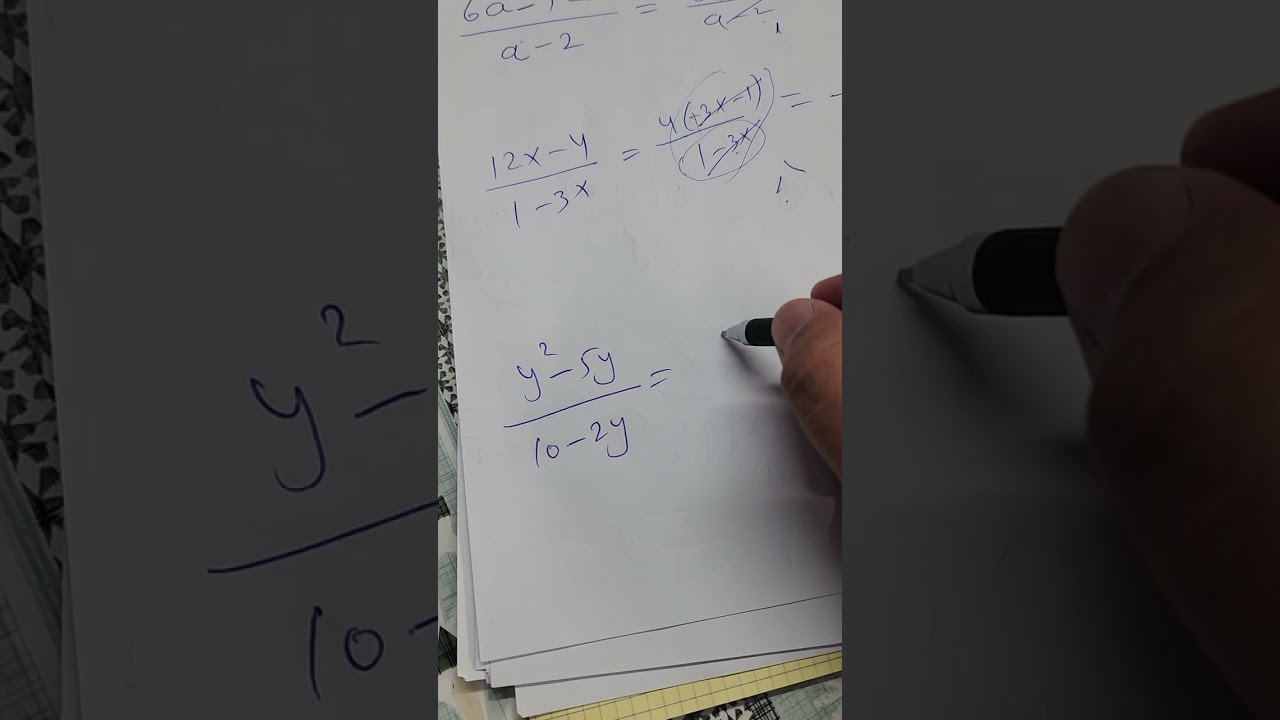 a - 2 = a - 2
12x - 4 / 1 - 3x = 4(+3x - 1) / 1 - 3x = -
y² - 5y / 10 - 2y =